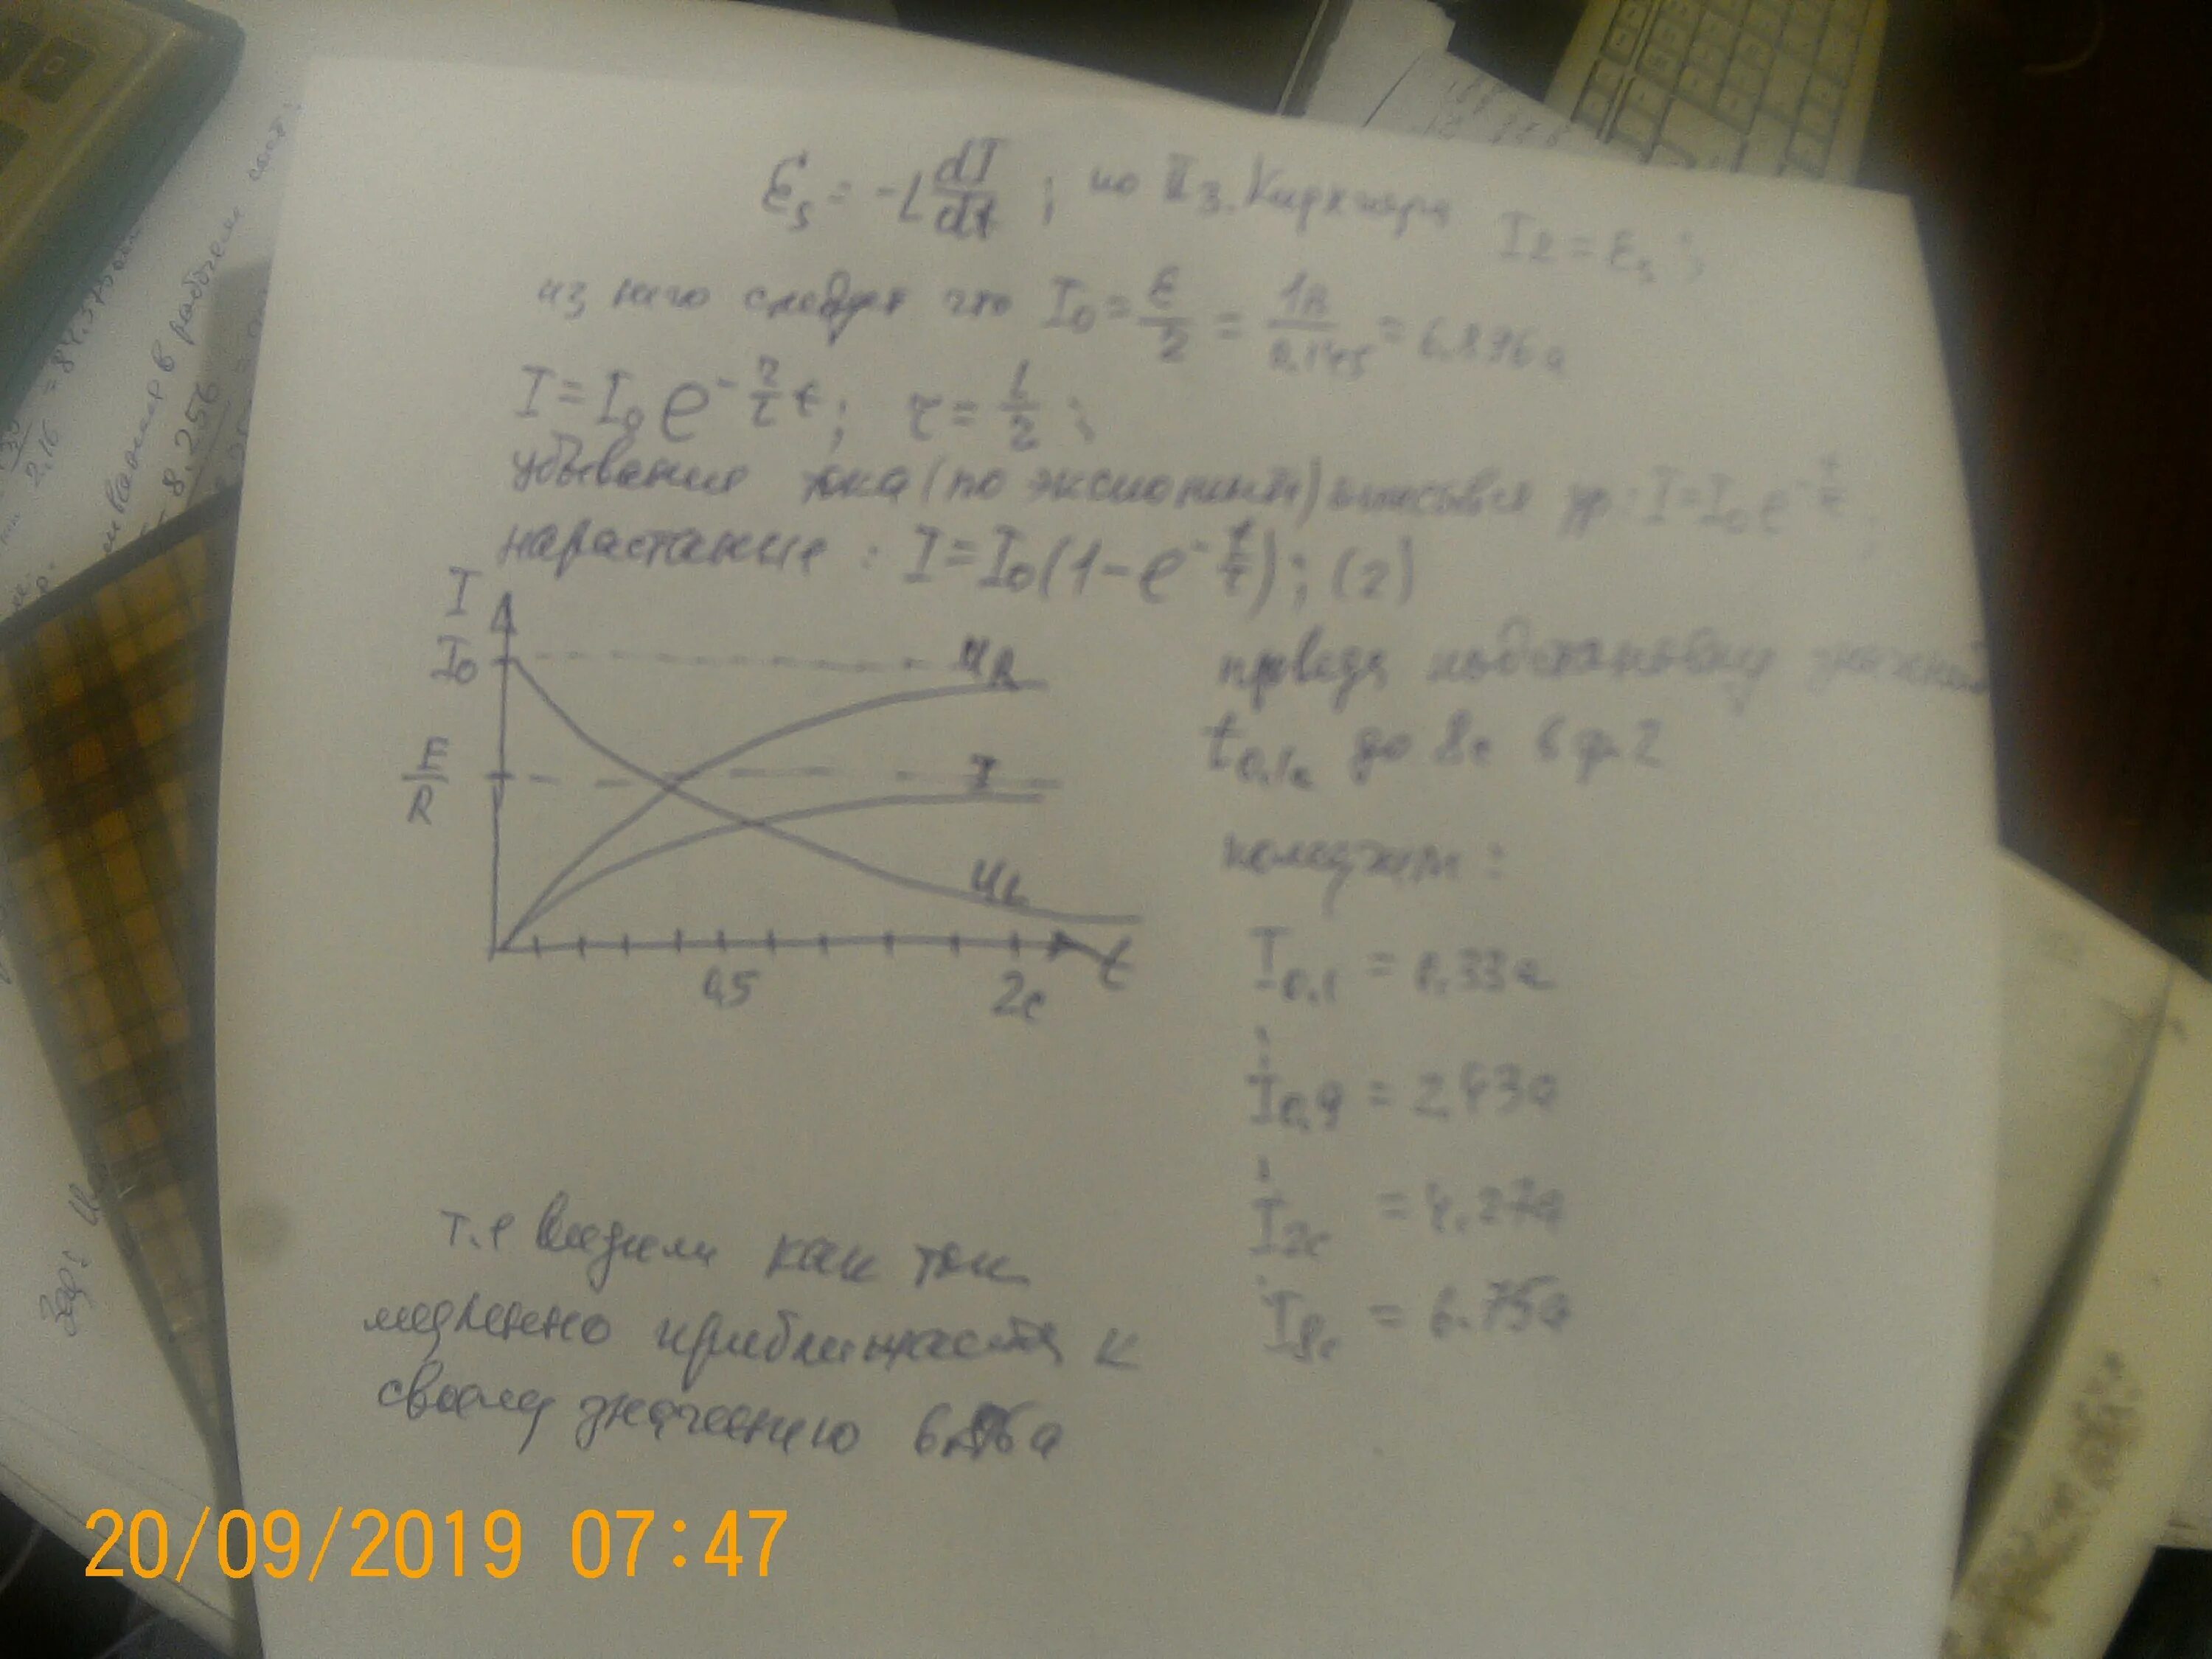 Ɛs = -L dI/dt ; по II з. Кирхгофа Ir = Ɛs ;
из него следует что I₀ = Ɛ/r = 1в/0.145 = 6.896а
I = I₀ e^(-r/L t) ; τ = L/r ;
убывание тока (по экспоненте) ур: I = I₀ e^(-t/τ) ;
нарастание : I = I₀(1 - e^(-t/τ)) ; (2)
I
I₀
E/R
U_R
I
U_L
0,5
2с
t
проведя подстановку значений
t 0.1с до 8с в ф. 2
получаем :
I 0.1 = 0.33а
I 0,9 = 2.43а
I 2с = 4.27а
I 8с = 6.75а
т.е видим как ток
медленно приближается к
своему значению 6.896а
20/09/2019 07:47
2.16
8.256
в рабочем сост :